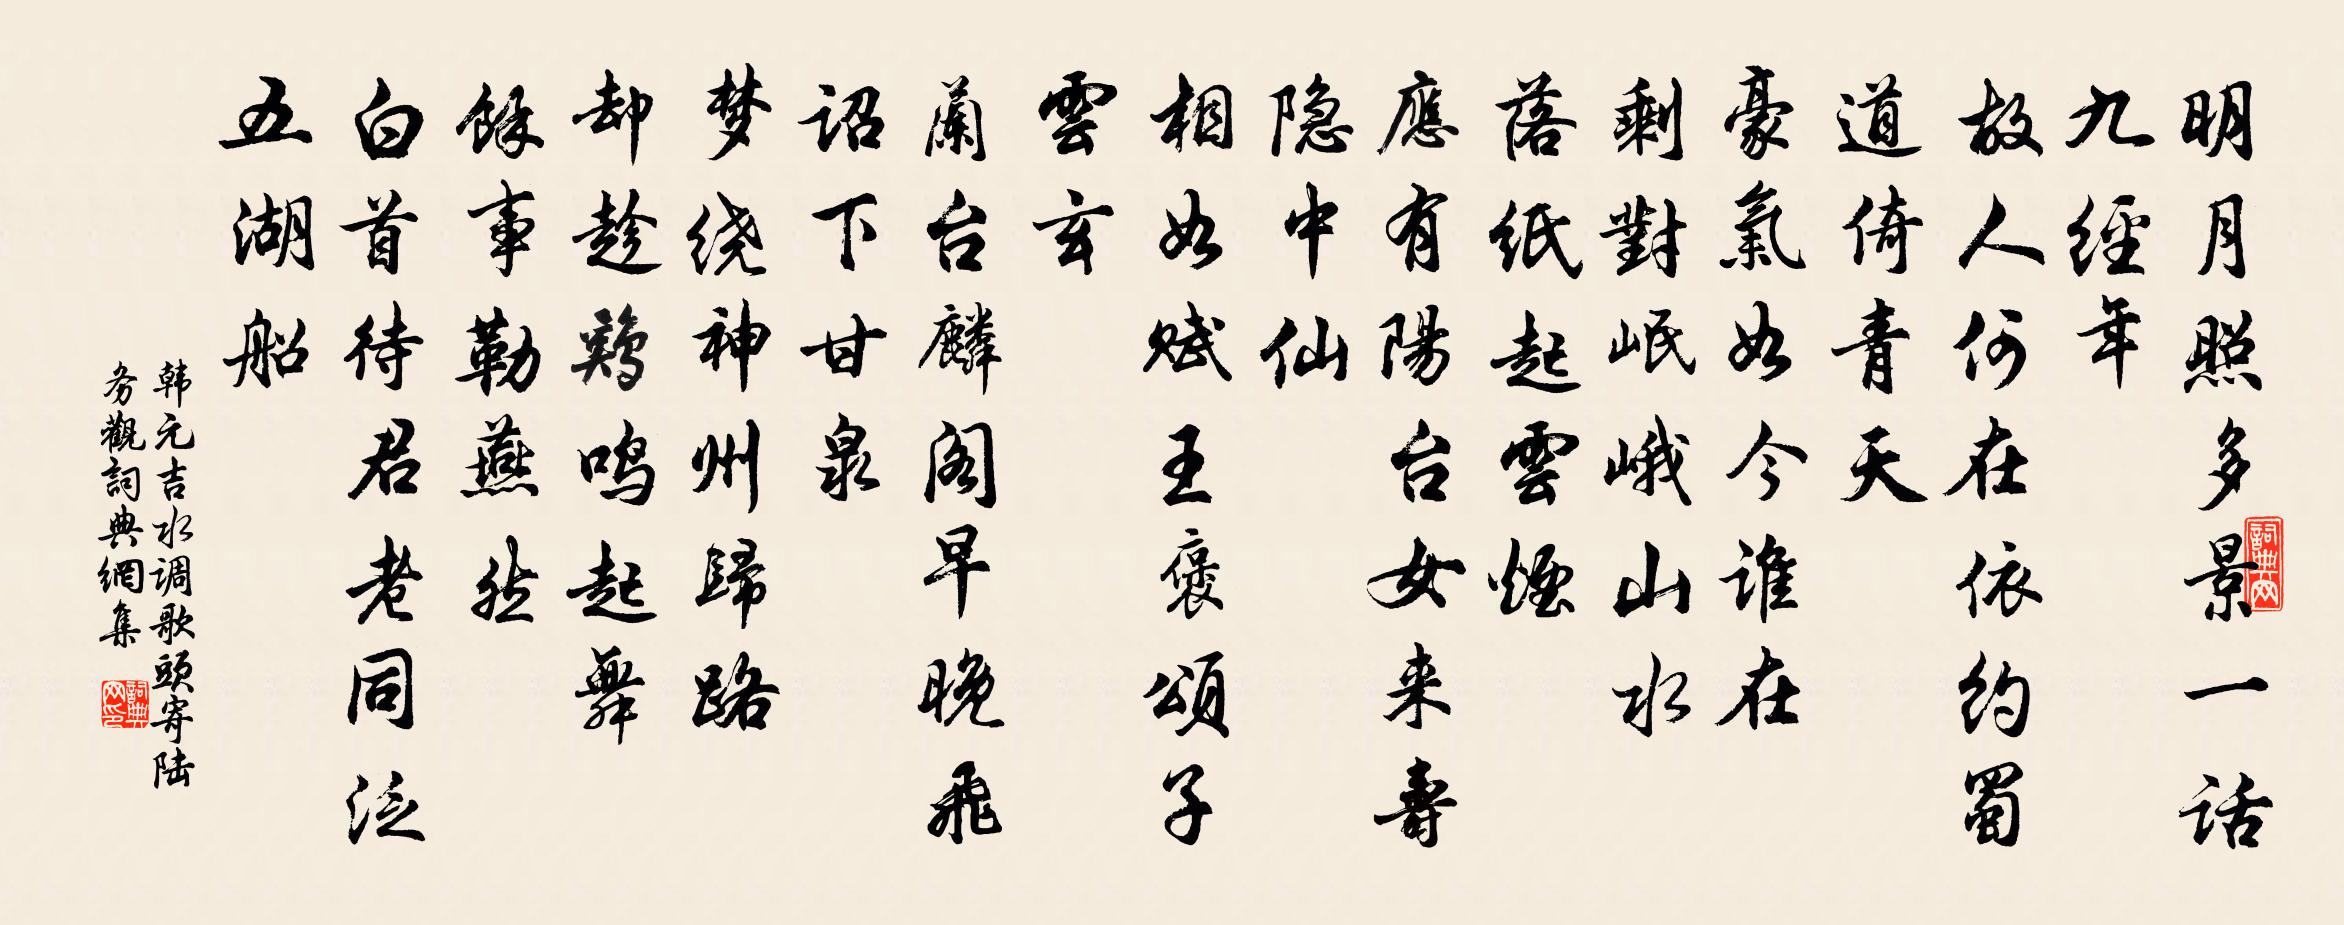 明月照多景一话
九經年
故人何在依约蜀
道倚青天
豪氣如今谁在
剩對岷峨山水
落纸起雲煙
應有陽台女来壽
隐中仙
相如赋王褒頌子
雲玄
蘭台麟阁早晚飛
詔下甘泉
梦绕神州歸路
却趁鶏鸣起舞
餘事勒燕然
白首待君老同泛
五湖船
韩元吉水调歌頭寄陆
务觀詞典網集
詞典网
詞典网印